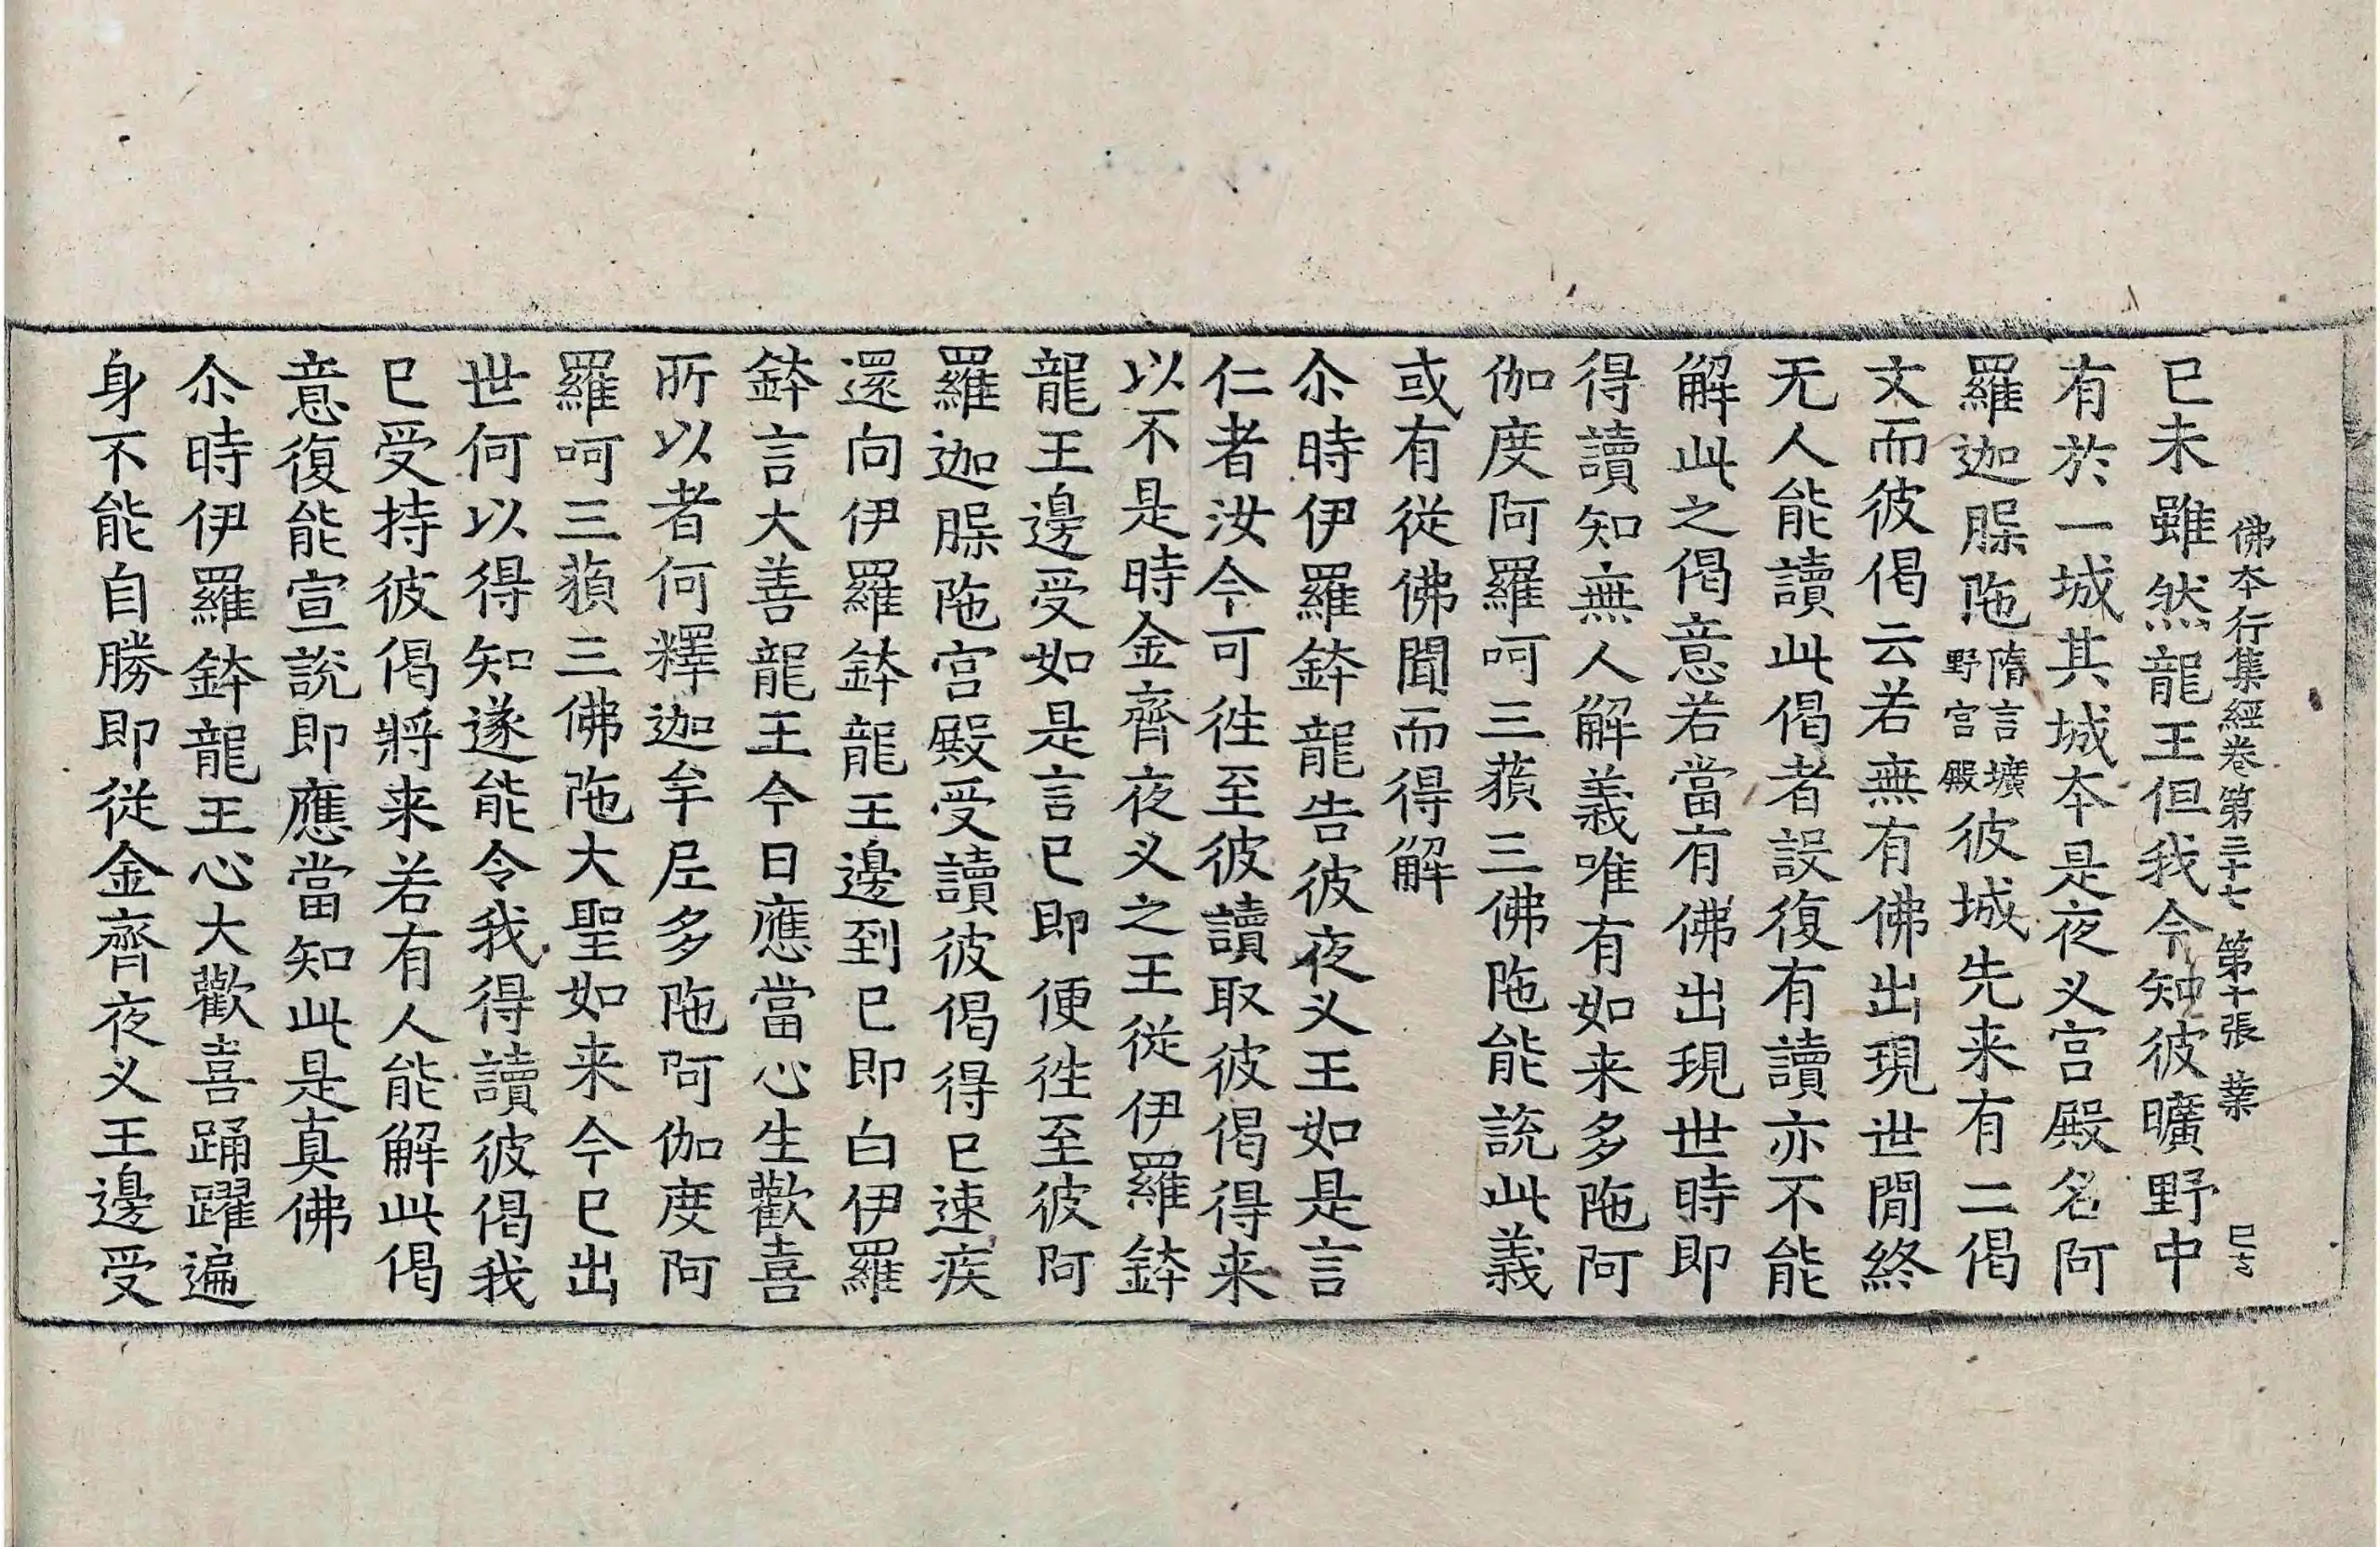 佛本行集經卷第三十七 第十張 業
已未雖然龍王但我令知彼曠野中
有於一城其城夲是夜叉宮殿名阿
羅迦䐗陁隋言壙野宮殿彼城先来有二偈
文而彼偈云若無有佛出現世閒終
无人能讀此偈者設復有讀亦不能
解此之偈意若當有佛出現世時即
得讀知無人解義唯有如来多陁阿
伽度阿羅呵三藐三佛陁能說此義
或有從佛聞而得解
尒時伊羅鉢龍告彼夜叉王如是言
仁者汝今可徃至彼讀取彼偈得来
以不是時金齊夜叉之王從伊羅鉢
龍王邊受如是言已即便徃至彼阿
羅迦䐗陁宮殿受讀彼偈得已速疾
還向伊羅鉢龍王邊到已即白伊羅
鉢言大善龍王今日應當心生歡喜
所以者何釋迦牟尼多陁阿伽度阿
羅呵三藐三佛陁大聖如来今已出
世何以得知遂能令我得讀彼偈我
已受持彼偈將来若有人能解此偈
意復能宣說即應當知此是真佛
尒時伊羅鉢龍王心大歡喜踊躍遍
身不能自勝即從金齊夜叉王邊受